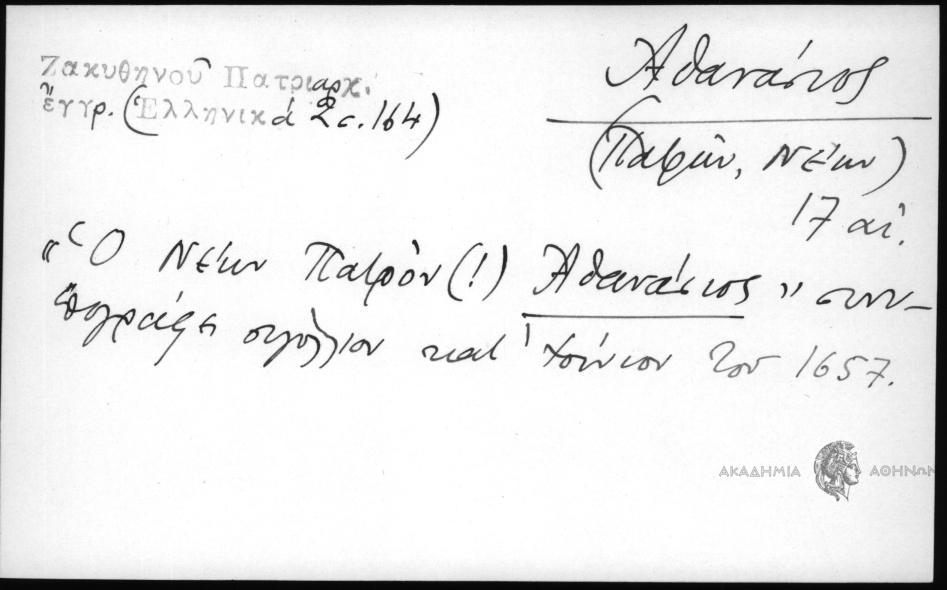 Ζακυθηνοῦ Πατριαρχ.
ἔγγρ. (Ἑλληνικά 2 σ. 164)
Ἀθανάσιος
(Πατρῶν, Νέων)
17 αἰ.
"Ὁ Νέων Πατρὸν (!) Ἀθανάσιος" συν-
υπογράφει σιγίλλιον κατ' Ἰούνιον τοῦ 1657.
ΑΚΑΔΗΜΙΑ ΑΘΗΝΩΝ